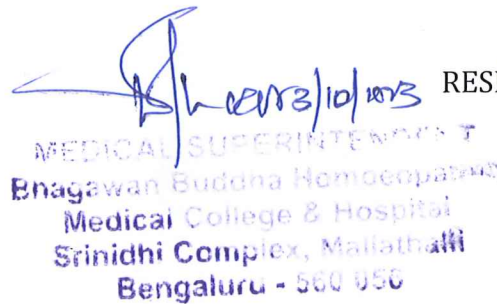 RESI
MEDICAL SUPERINTENDENT
Bhagawan Buddha Homoeopathic
Medical College & Hospital
Srinidhi Complex, Mallathalli
Bengaluru - 560 056